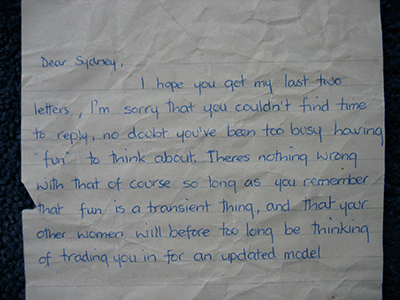 Dear Sydney,
I hope you got my last two
letters, I'm sorry that you couldn't find time
to reply, no doubt you've been too busy having
"fun" to think about. Theres nothing wrong
with that of course so long as you remember
that fun is a transient thing, and that your
other women will before too long be thinking
of trading you in for an updated model